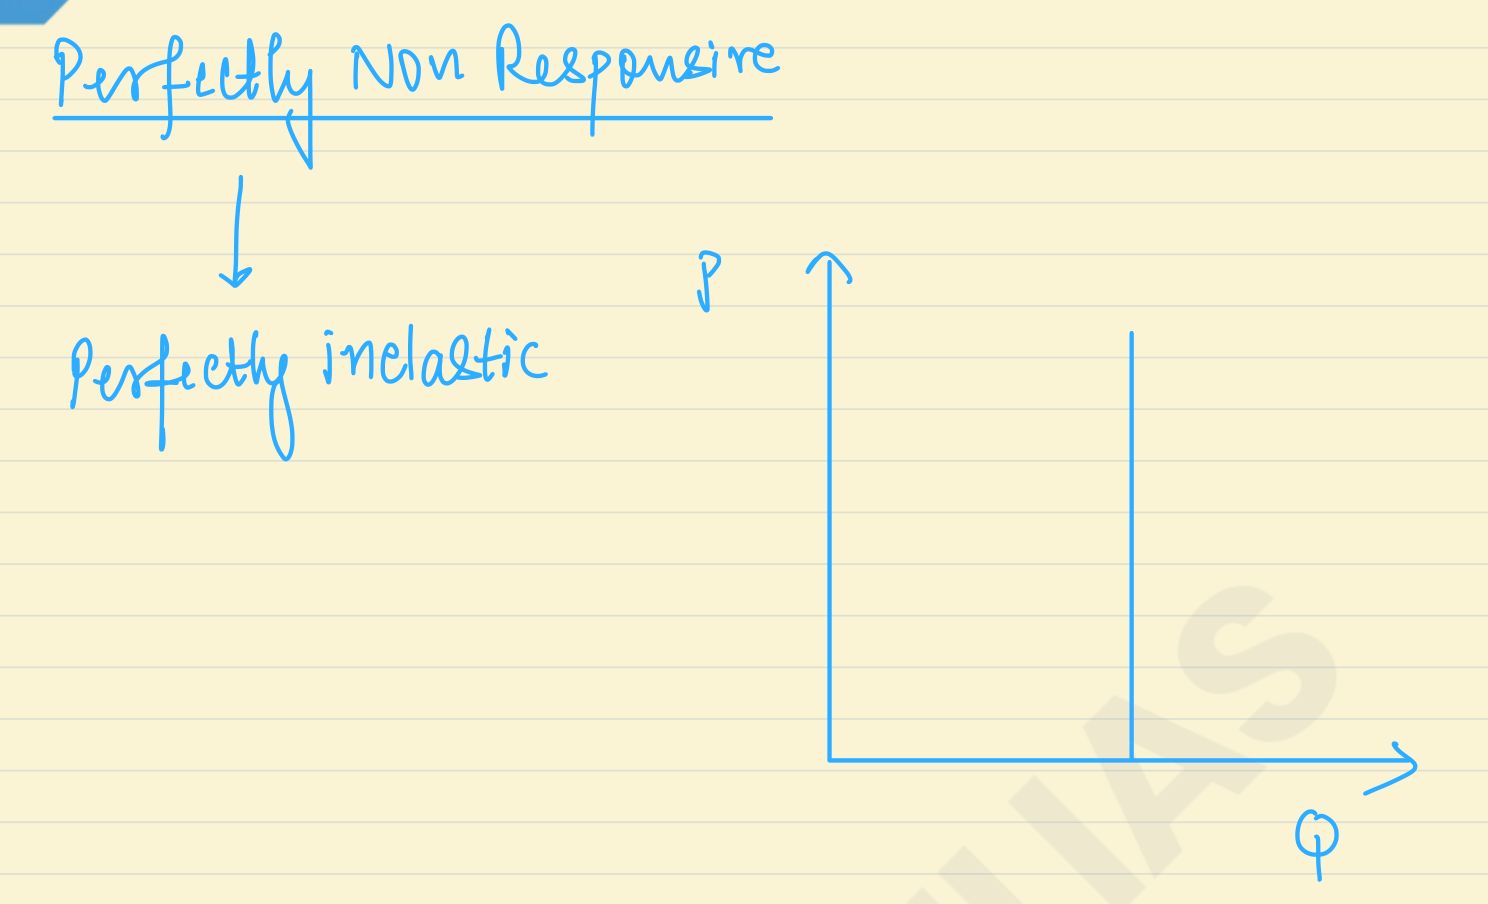 Perfectly Non Responsive
Perfectly inelastic
P
Q
IAS